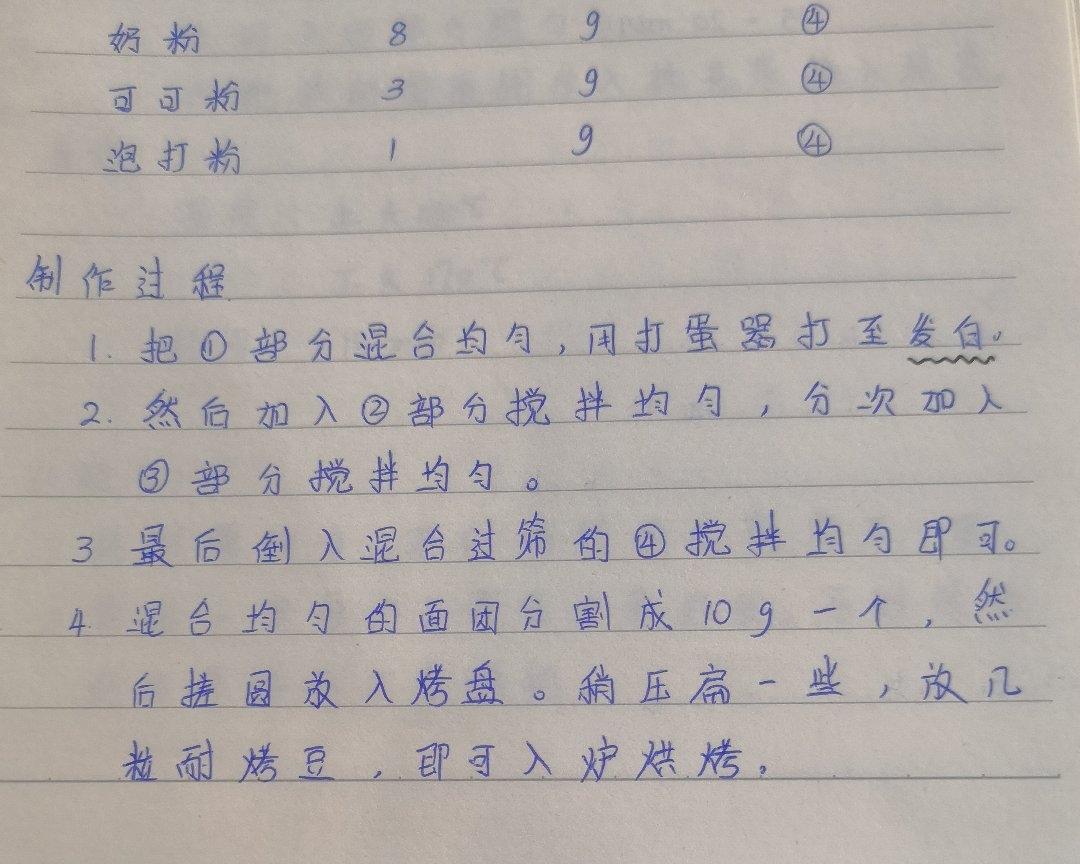 奶粉 8 g ④
可可粉 3 g ④
泡打粉 1 g ④
制作过程
1. 把①部分混合均匀,用打蛋器打至发白。
2. 然后加入②部分搅拌均匀,分次加入
③部分搅拌均匀。
3 最后倒入混合过筛的④搅拌均匀即可。
4. 混合均匀的面团分割成10g一个,然
后搓圆放入烤盘。稍压扁一些,放几
粒耐烤豆,即可入炉烘烤。